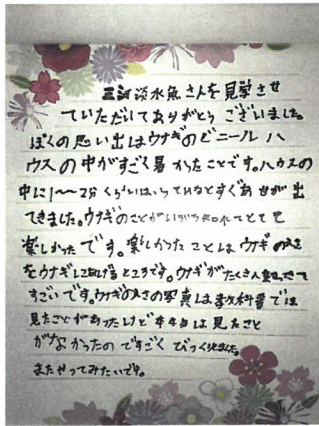 三河淡水魚さんを見学させ
ていただいてありがとうございました。
ぼくの思い出はウナギのビニールハ
ウスの中がすごく暑かったことです。ハウスの
中に1〜2分くらいはいっているとすぐあせが出
てきました。ウナギのことがいろいろ知れてとても
楽しかったです。楽しかったことはウナギのえさ
をウナギにあげるところです。ウナギがたくさん
すごいです。ウナギのえさの写真は教科書では
見たことがあったけど本物は見たこと
がなかったのですごくびっくりしました。
またやってみたいです。